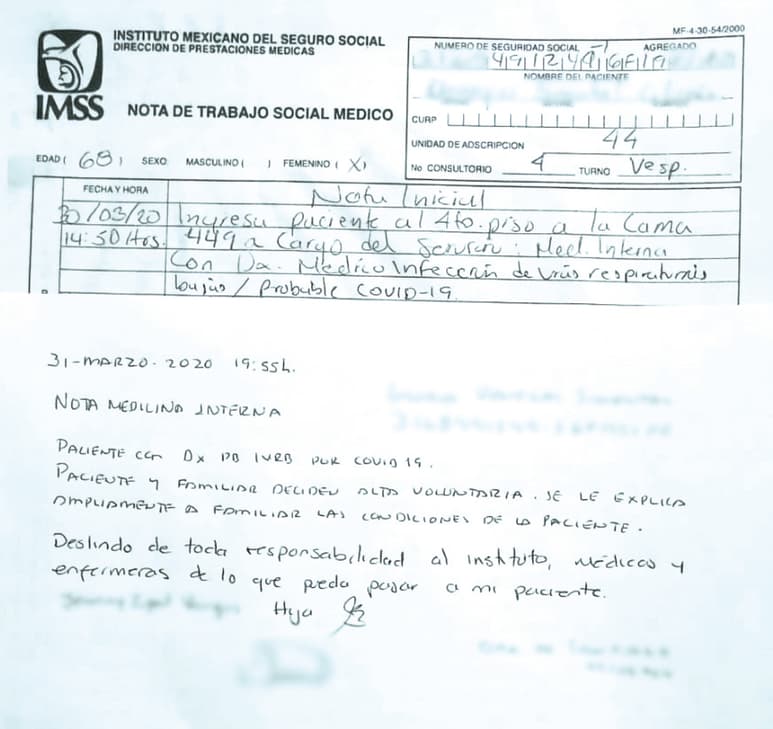 MF-4-30-54/2000
INSTITUTO MEXICANO DEL SEGURO SOCIAL
DIRECCION DE PRESTACIONES MEDICAS
IMSS
NOTA DE TRABAJO SOCIAL MEDICO
NUMERO DE SEGURIDAD SOCIAL AGREGADO
NOMBRE DEL PACIENTE
CURP
UNIDAD DE ADSCRIPCION 44
No CONSULTORIO 4 TURNO Vesp.
EDAD ( 68 ) SEXO MASCULINO ( ) FEMENINO ( X )
FECHA Y HORA Nota Inicial
30/03/20 Ingresa paciente al 4to. piso a la Cama
14:50 Hrs. 449 a Cargo del Servicio: Med. Interna
Con Dx. Medico Infección de vias respiratorias
bajas / Probable COVID-19.
31-MARZO-2020 19:55h.
NOTA MEDICINA INTERNA
PACIENTE CON DX DE IVRB POR COVID 19.
PACIENTE Y FAMILIAR DECIDEN ALTA VOLUNTARIA. SE LE EXPLICA
AMPLIAMENTE A FAMILIAR LAS CONDICIONES DE LA PACIENTE.
Deslindo de toda responsabilidad al instituto, médicos y
enfermeras de lo que pueda pasar a mi paciente.
Hija